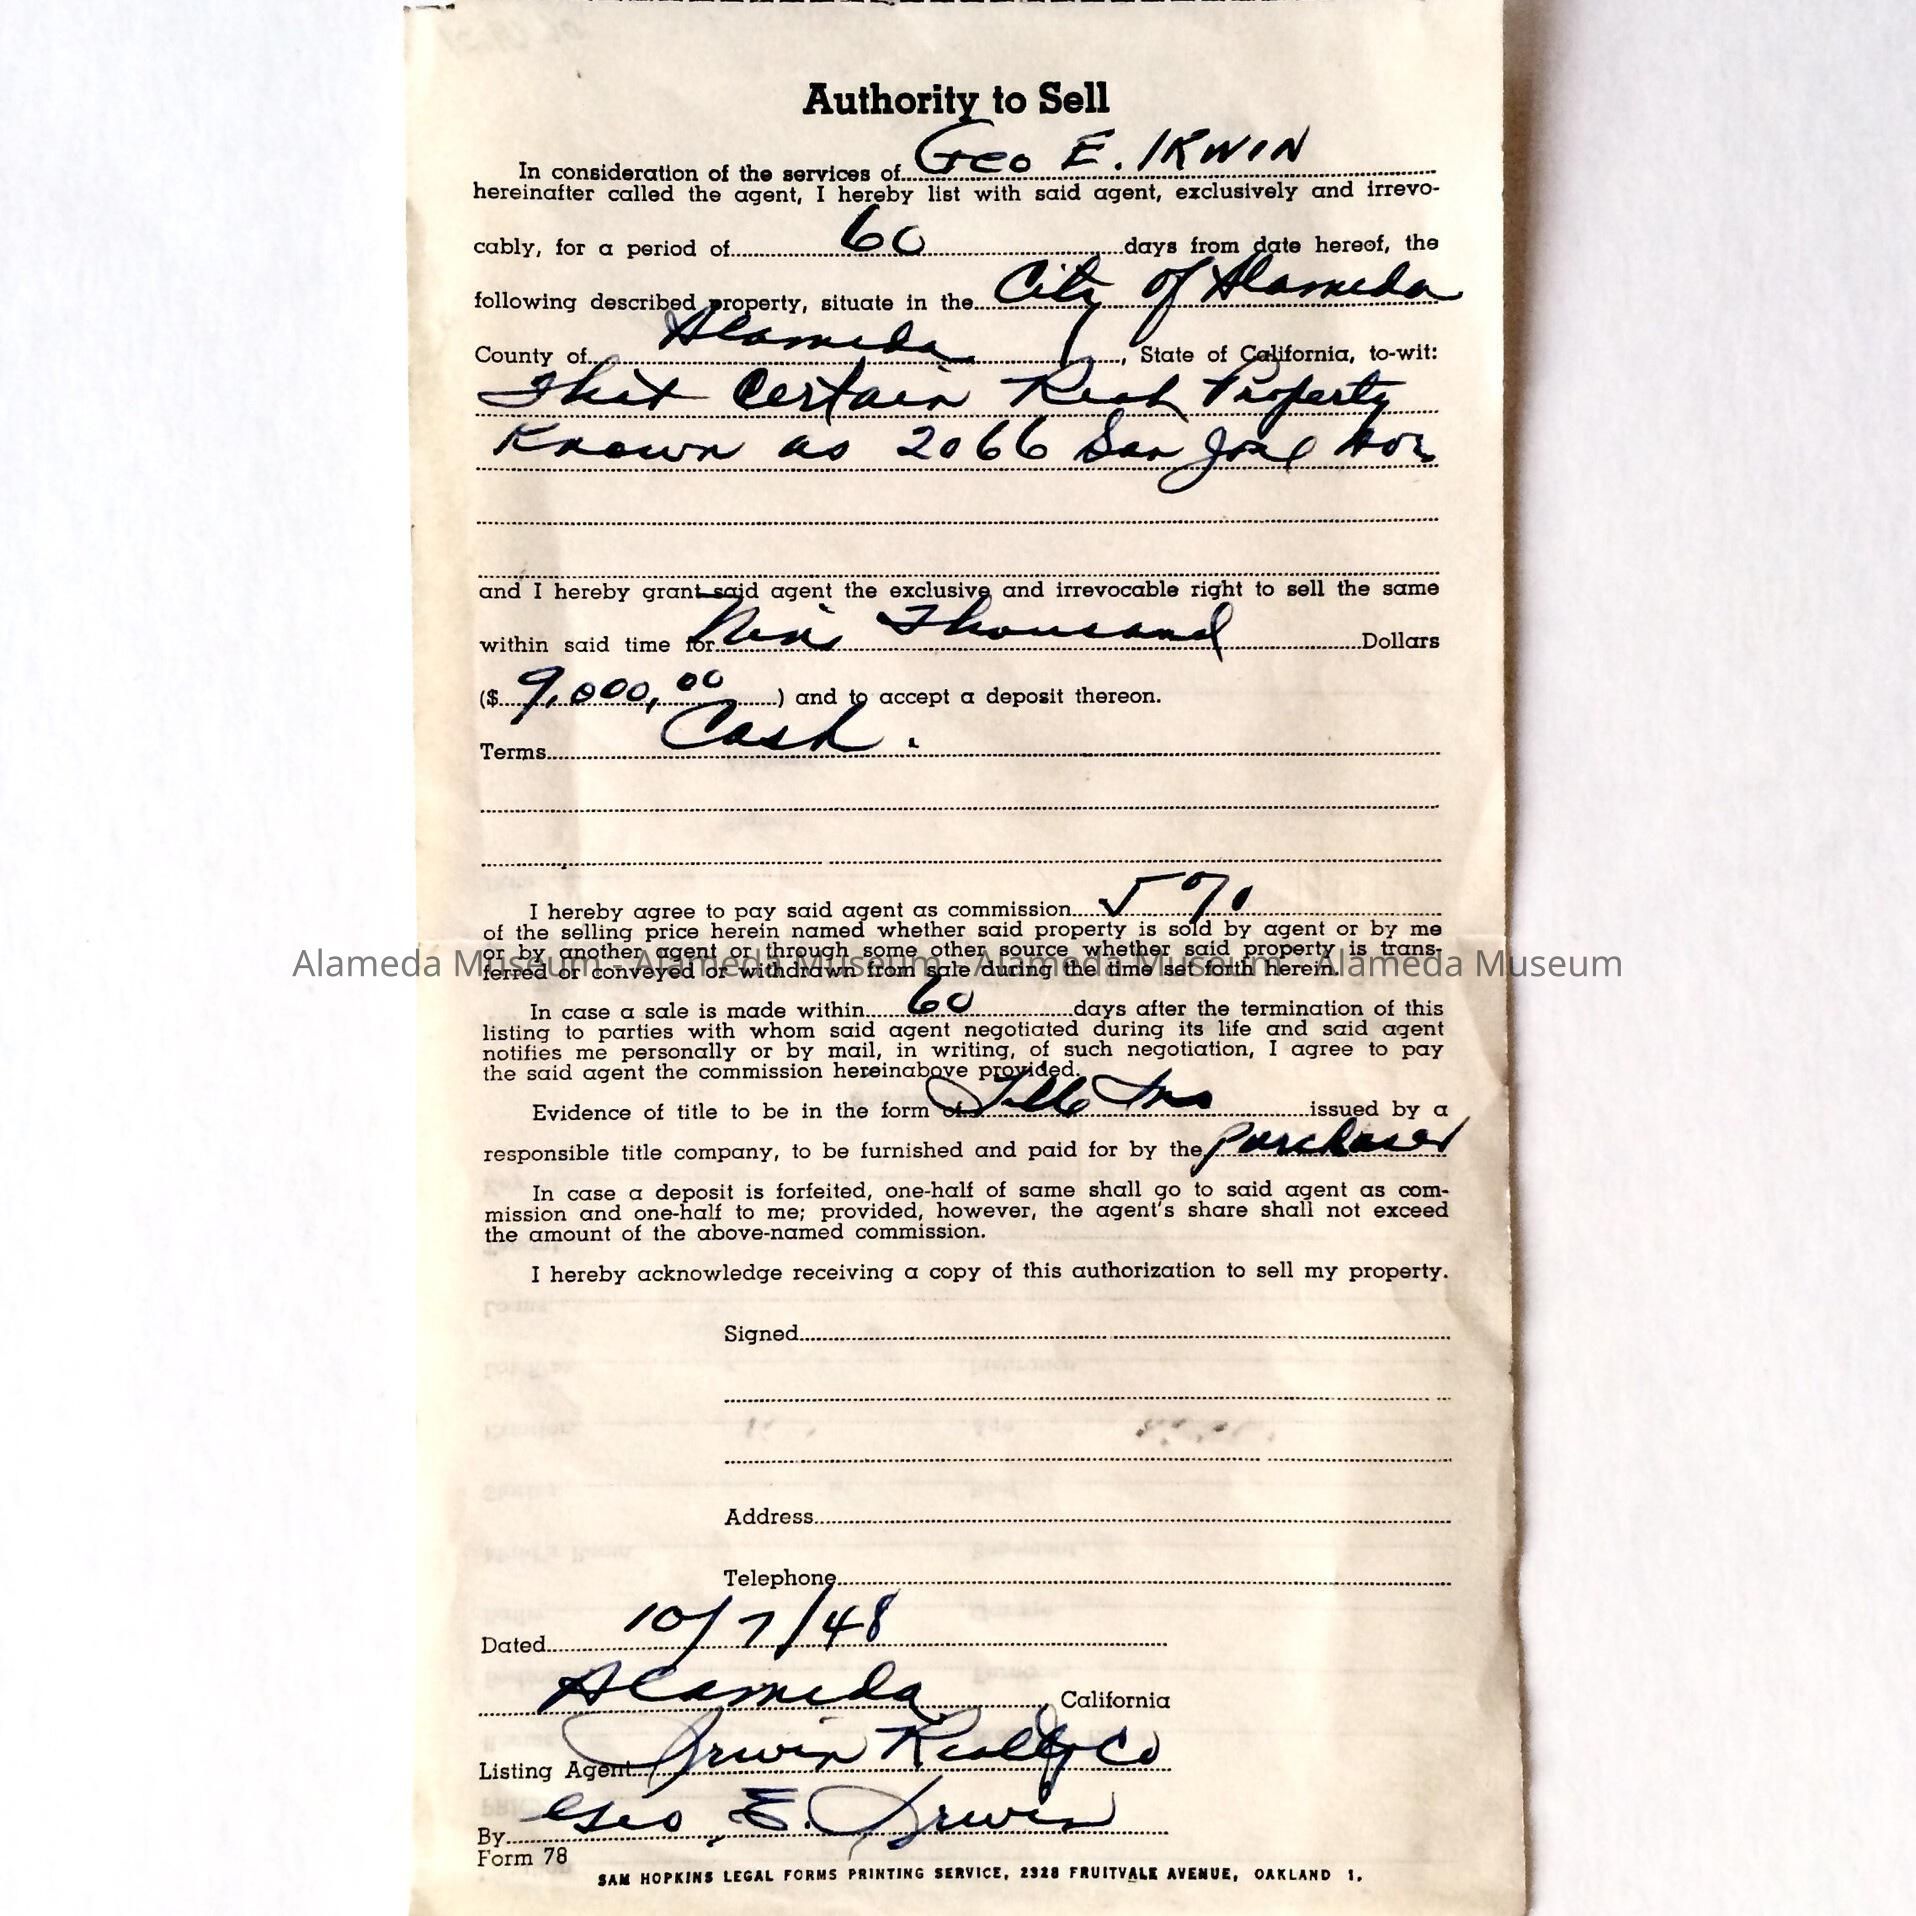 Authority to Sell
In consideration of the services of Geo E. IRWIN
hereinafter called the agent, I hereby list with said agent, exclusively and irrevo-
cably, for a period of 60 days from date hereof, the
following described property, situate in the City of Alameda
County of Alameda, State of California, to-wit:
That Certain Real Property
Known as 2066 San Jose Ave
and I hereby grant said agent the exclusive and irrevocable right to sell the same
within said time for Nine Thousand Dollars
($ 9,000,00 ) and to accept a deposit thereon.
Terms Cash.
I hereby agree to pay said agent as commission 5%
of the selling price herein named whether said property is sold by agent or by me
or by another agent or through some other source whether said property is trans-
Alameda Museum - Alameda Museum - Alameda Museum - Alameda Museum
ferred or conveyed or withdrawn from sale during the time set forth herein.
In case a sale is made within 60 days after the termination of this
listing to parties with whom said agent negotiated during its life and said agent
notifies me personally or by mail, in writing, of such negotiation, I agree to pay
the said agent the commission hereinabove provided.
Evidence of title to be in the form of Title Ins issued by a
responsible title company, to be furnished and paid for by the purchaser
In case a deposit is forfeited, one-half of same shall go to said agent as com-
mission and one-half to me; provided, however, the agent's share shall not exceed
the amount of the above-named commission.
I hereby acknowledge receiving a copy of this authorization to sell my property.
Signed
Address
Telephone
Dated 10/7/48
Alameda, California
Listing Agent Irwin Realty Co
By Geo E. Irwin
Form 78
SAM HOPKINS LEGAL FORMS PRINTING SERVICE, 2328 FRUITVALE AVENUE, OAKLAND 1.